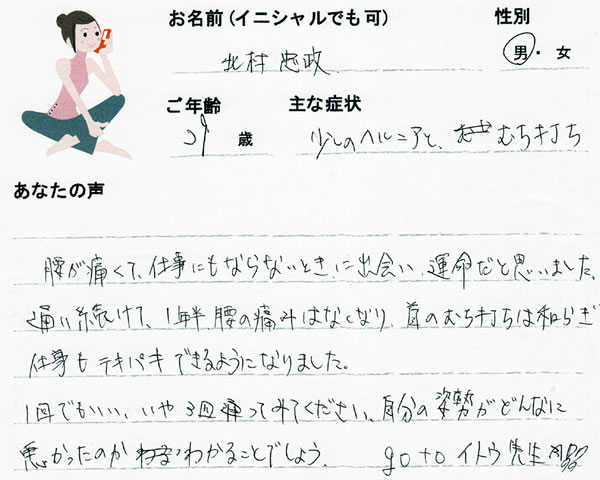 お名前(イニシャルでも可) 性別
北村忠政 男・女
ご年齢 主な症状
29歳 少しのヘルニアと、むち打ち
あなたの声
腰が痛くて、仕事にもならないとき、に出会い、運命だと思いました。
通い続けて、1年半腰の痛みはなくなり、首のむち打ちは和らぎ
仕事もテキパキできるようになりました。
1回でもいい、いや3回通ってみてください、自分の姿勢がどんなに
悪かったのかわかることでしょう。 go to イトウ先生